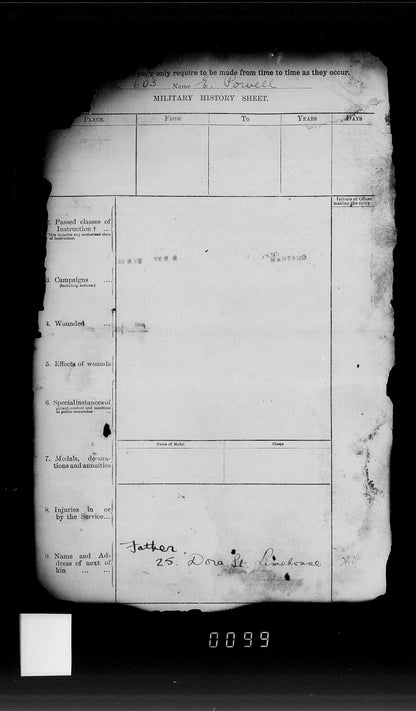 page only require to be made from time to time as they occur.
No. 603 Name E. Powell
MILITARY HISTORY SHEET.
PLACE. FROM TO YEARS DAYS
Initials of Officer
making the entry
2. Passed classes of
Instruction † ...
3. Campaigns ...
(including Actions.)
4. Wounded ...
5. Effects of wounds
6. Special instances of
gallant conduct and mentions
in public despatches ...
Name of Medal Clasps
7. Medals, decora-
tions and annuities
8. Injuries in or
by the Service...
9. Name and Ad-
dress of next of
kin ... ...
Father
25. Dora St. Limehouse
0099